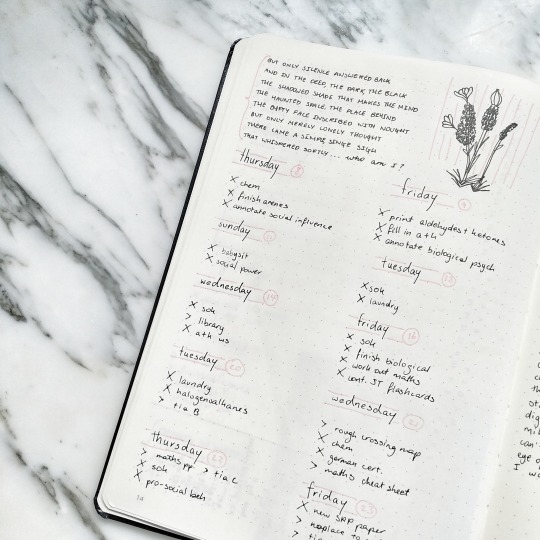 BUT ONLY SILENCE ANSWERED BACK
AND IN THE DEEP, THE DARK, THE BLACK
THE SHADOWED SHADE THAT MAKES THE MIND
THE HAUNTED SPACE, THE PLACE BEHIND
THE EMPTY FACE INSCRIBED WITH NOUGHT
BUT ONLY MERELY LONELY THOUGHT
THERE CAME A SIMPLE SENSE SIGH
THAT WHISPERED SOFTLY... who am I?
thursday 8
X chem
X finish arenes
X annotate social influence
sunday
X babysit
X social power
wednesday 14
X soh
> library
X a+h ws
tuesday 20
X laundry
X halogenoalkanes
> tia B
thursday 22
> maths pp > tia C
X soh
X pro-social beh
friday 9
X print aldehydes + ketones
X fill in a+h
X annotate biological psych
tuesday 13
X soh
X laundry
friday 16
X soh
X finish biological
X work out maths
X cont. JT flashcards
wednesday 21
> rough crossing map
X chem
X german cert.
> maths cheat sheet
friday 23
X new paper
> to